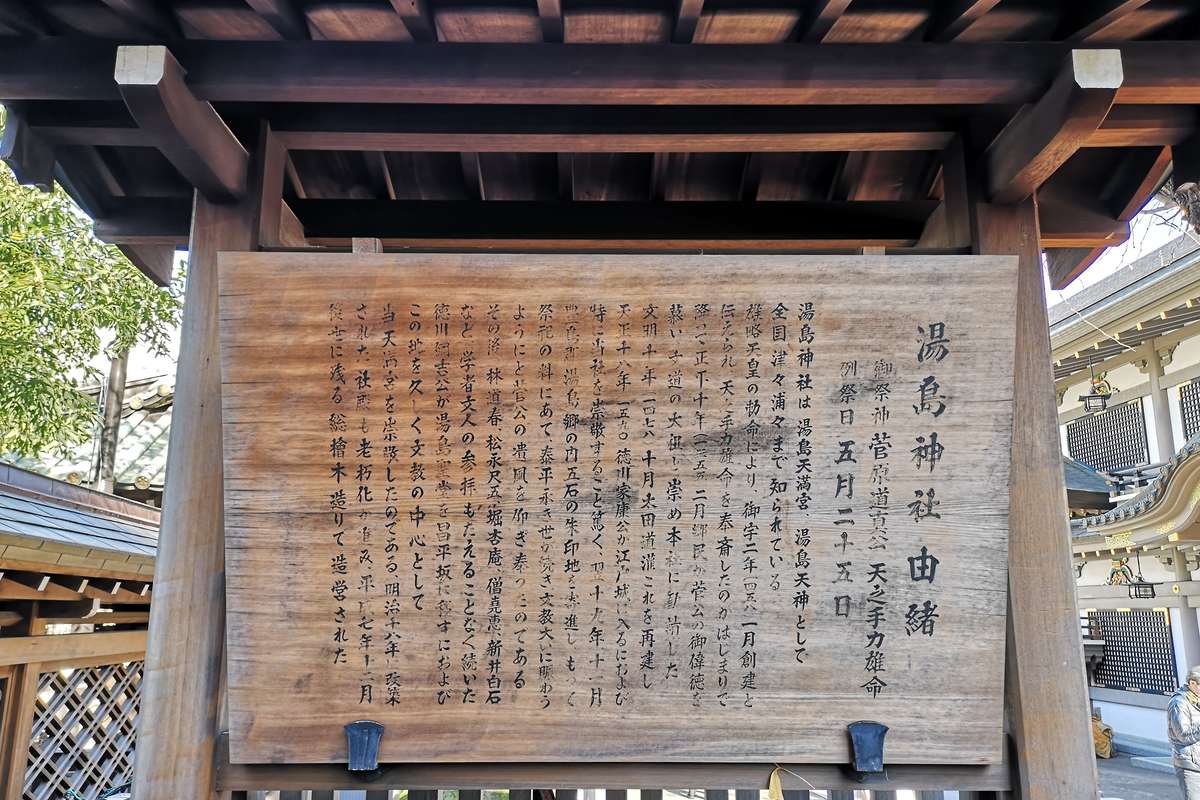 湯島神社由緒
御祭神 菅原道真公 天之手力雄命
例祭日 五月二十五日
湯島神社は 湯島天満宮 湯島天神として
全国津々浦々まで知られている
雄略天皇の勅命により 御宇二年 四五八 一月創建と
伝えられ 天之手力雄命を奉斎したのがはじまりで
降って正平十年 一三五五 二月郷民が菅公の御偉徳を
慕い 文道の大祖と崇め本社に勧請した
文明十年 一四七八 十月 太田道灌これを再建し
天正十八年 一五九〇 徳川家康公が江戸城に入るにおよび
特に当社を崇敬すること篤く 翌十九年十一月
豊島郡湯島郷の内五石の朱印地を寄進し もって
祭祀の料にあて 泰平永き世が続き文教大いに賑わう
ようにと菅公の遺風を仰ぎ奉ったのである
その後 林道春 松永尺五 堀杏庵 僧堯恵 新井白石
など 学者文人の参拝もたえることなく続いた
徳川綱吉公が湯島聖堂を昌平坂に移すにおよび
この地を久しく文教の中心として
当天満宮を崇敬したのである 明治十八年 改築
された社殿も老朽化が進み 平成七年十二月
後世に残る総檜木造りで造営された